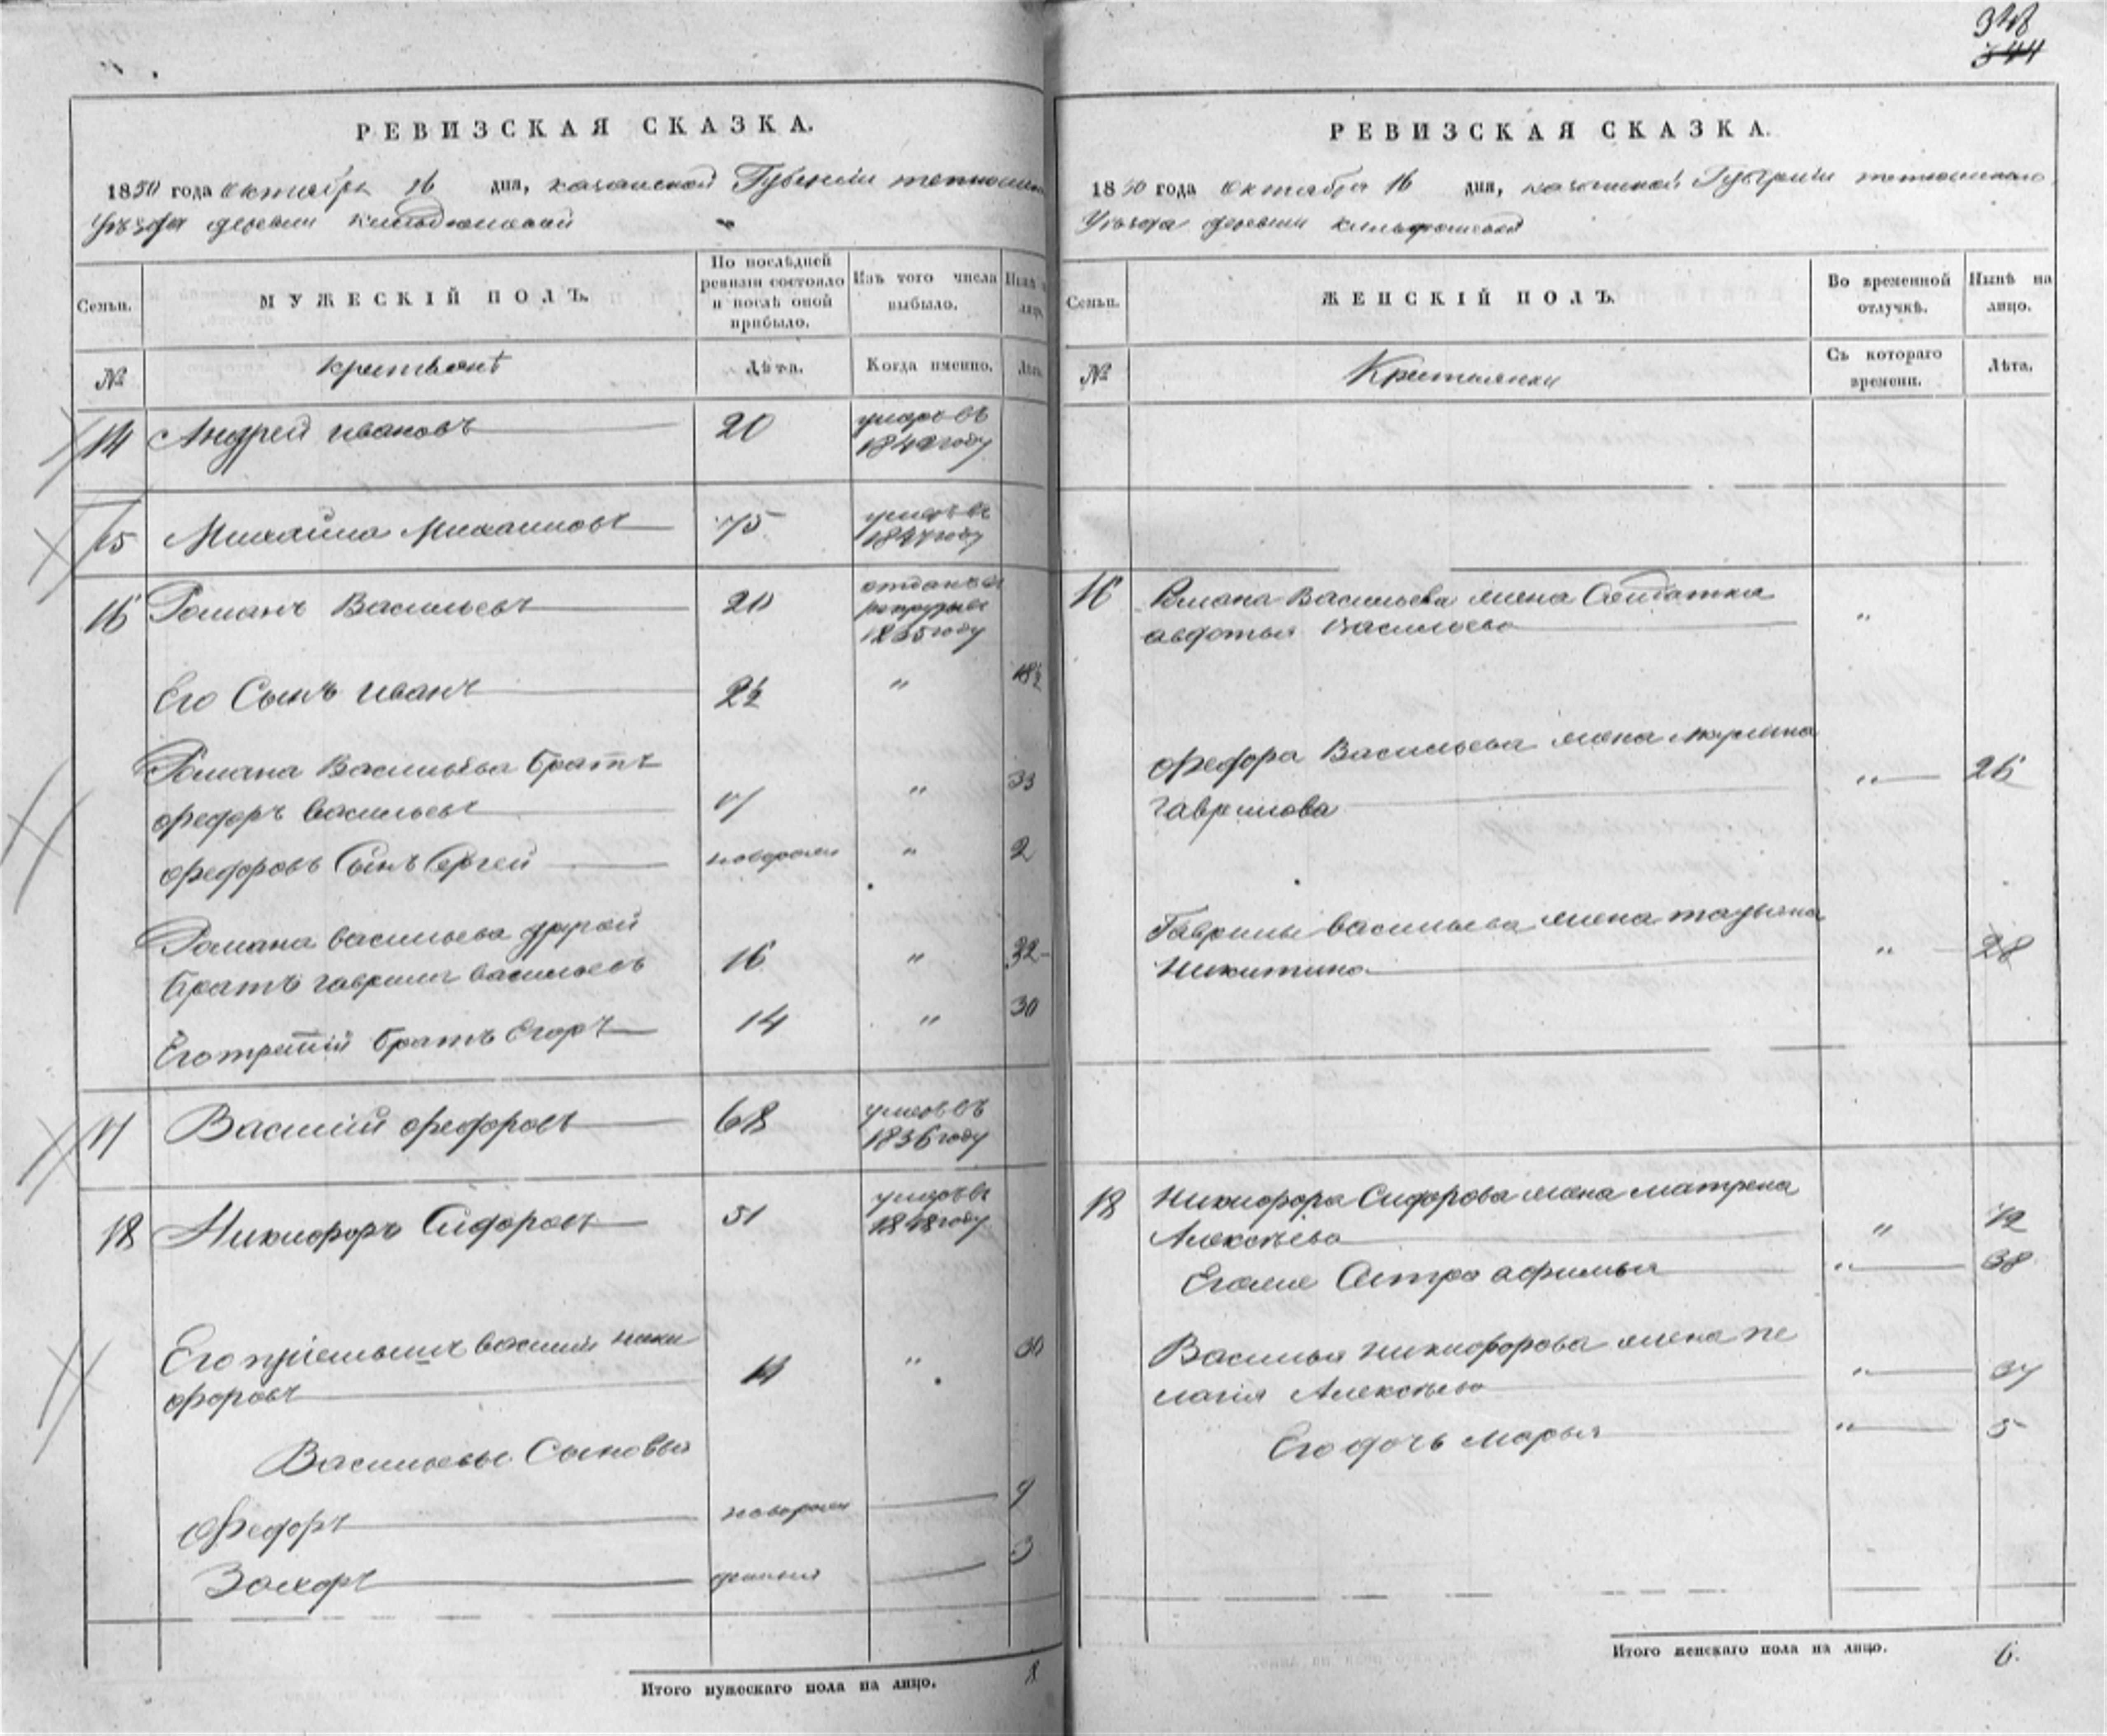 348
344
РЕВИЗСКАЯ СКАЗКА.
1850 года октября 16 дня, казанской Губернии тетюшска
Уѣзда деревни кильдюшевой
Семьи.
МУЖЕСКІЙ ПОЛЪ.
По послѣдней ревизіи состояло и послѣ оной прибыло.
Изъ того числа выбыло.
Нынѣ на лицо.
№
крестьянѣ
Лѣта.
Когда именно.
Лѣта.
14 Андрей ивановъ 20 умеръ въ
1840 году
15 Михайла Михаиловъ 75 умеръ въ
1847 году
16 Романъ Васильевъ 20 отданъ въ
рекруты въ
1835 году
Его Сынъ иванъ 2½ " 18½
Романа Васильева братъ
Федоръ васильевъ 17 " 33
Федоровъ Сынъ Сергей новорожден " 2
Романа васильева другой
братъ гаврила васильевъ 16 " 32
Его третій братъ Егоръ 14 " 30
17 Василий Федоровъ 68 умеръ въ
1836 году
18 Никифоръ Сидоровъ 51 умеръ въ
1848 году
Его приемышъ василий ники
форовъ 14 " 30
Васильевы Сыновья
Федоръ новорожден 9
Захаръ 3
Итого мужескаго пола на лицо. 8
РЕВИЗСКАЯ СКАЗКА.
1850 года октября 16 дня, казанской Губернии тетюшскаго
Уѣзда деревни кильдюшевой
Семьи.
ЖЕНСКІЙ ПОЛЪ.
Во временной отлучкѣ.
Нынѣ на лицо.
№
Крестьянки
Съ котораго времени.
Лѣта.
16 Романа Васильева жена Солдатка
авдотья Васильева "
Федора Васильева жена акулина
гаврилова " 26
Гаврилы васильева жена татьяна
Никитина " 28
18 Никифора Сидорова жена матрена
Алексѣева "
Егоже Сестра афимья " 38
Василья никифорова жена пе
лагія Алексѣева " 37
Его дочь марья " 5
Итого женскаго пола на лицо. 6.